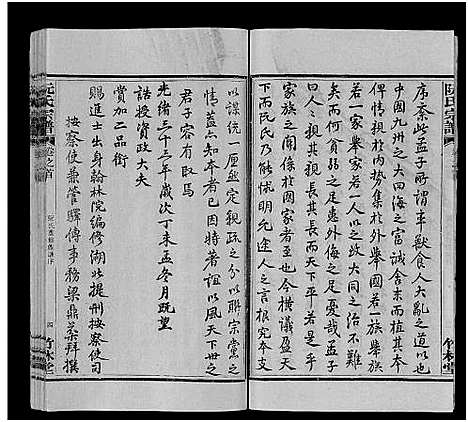 阮氏宗譜
序紊此孟子所謂率獸食人大亂之道以也
中國九州之大四海之富誠舍末而植其本
則家積於內勢集於外舉國若一族舉族
若一家舉家若一人以之致大同之治不難
矣而何貧弱之足患外侮之足憂哉孟子
曰人人親其親長其長而天下平若是乎
家族之所關於國家者也今橫議盈天
下而阮氏乃能怵明允途人之言根究本支
竹林堂
以謀統一厘然定親疏之分以聯宗黨之
情蓋亦知本者已因特著誼以風天下世之
君子容有取焉
光緒三十三年歲次丁未孟冬月既望
誥授資政大夫
賞加二品銜
賜進士出身翰林院編修湖北提刑按察使司
按察使兼管驛傳事務梁鼎棻拜撰
阮氏宗譜
卷之首
四
竹林堂